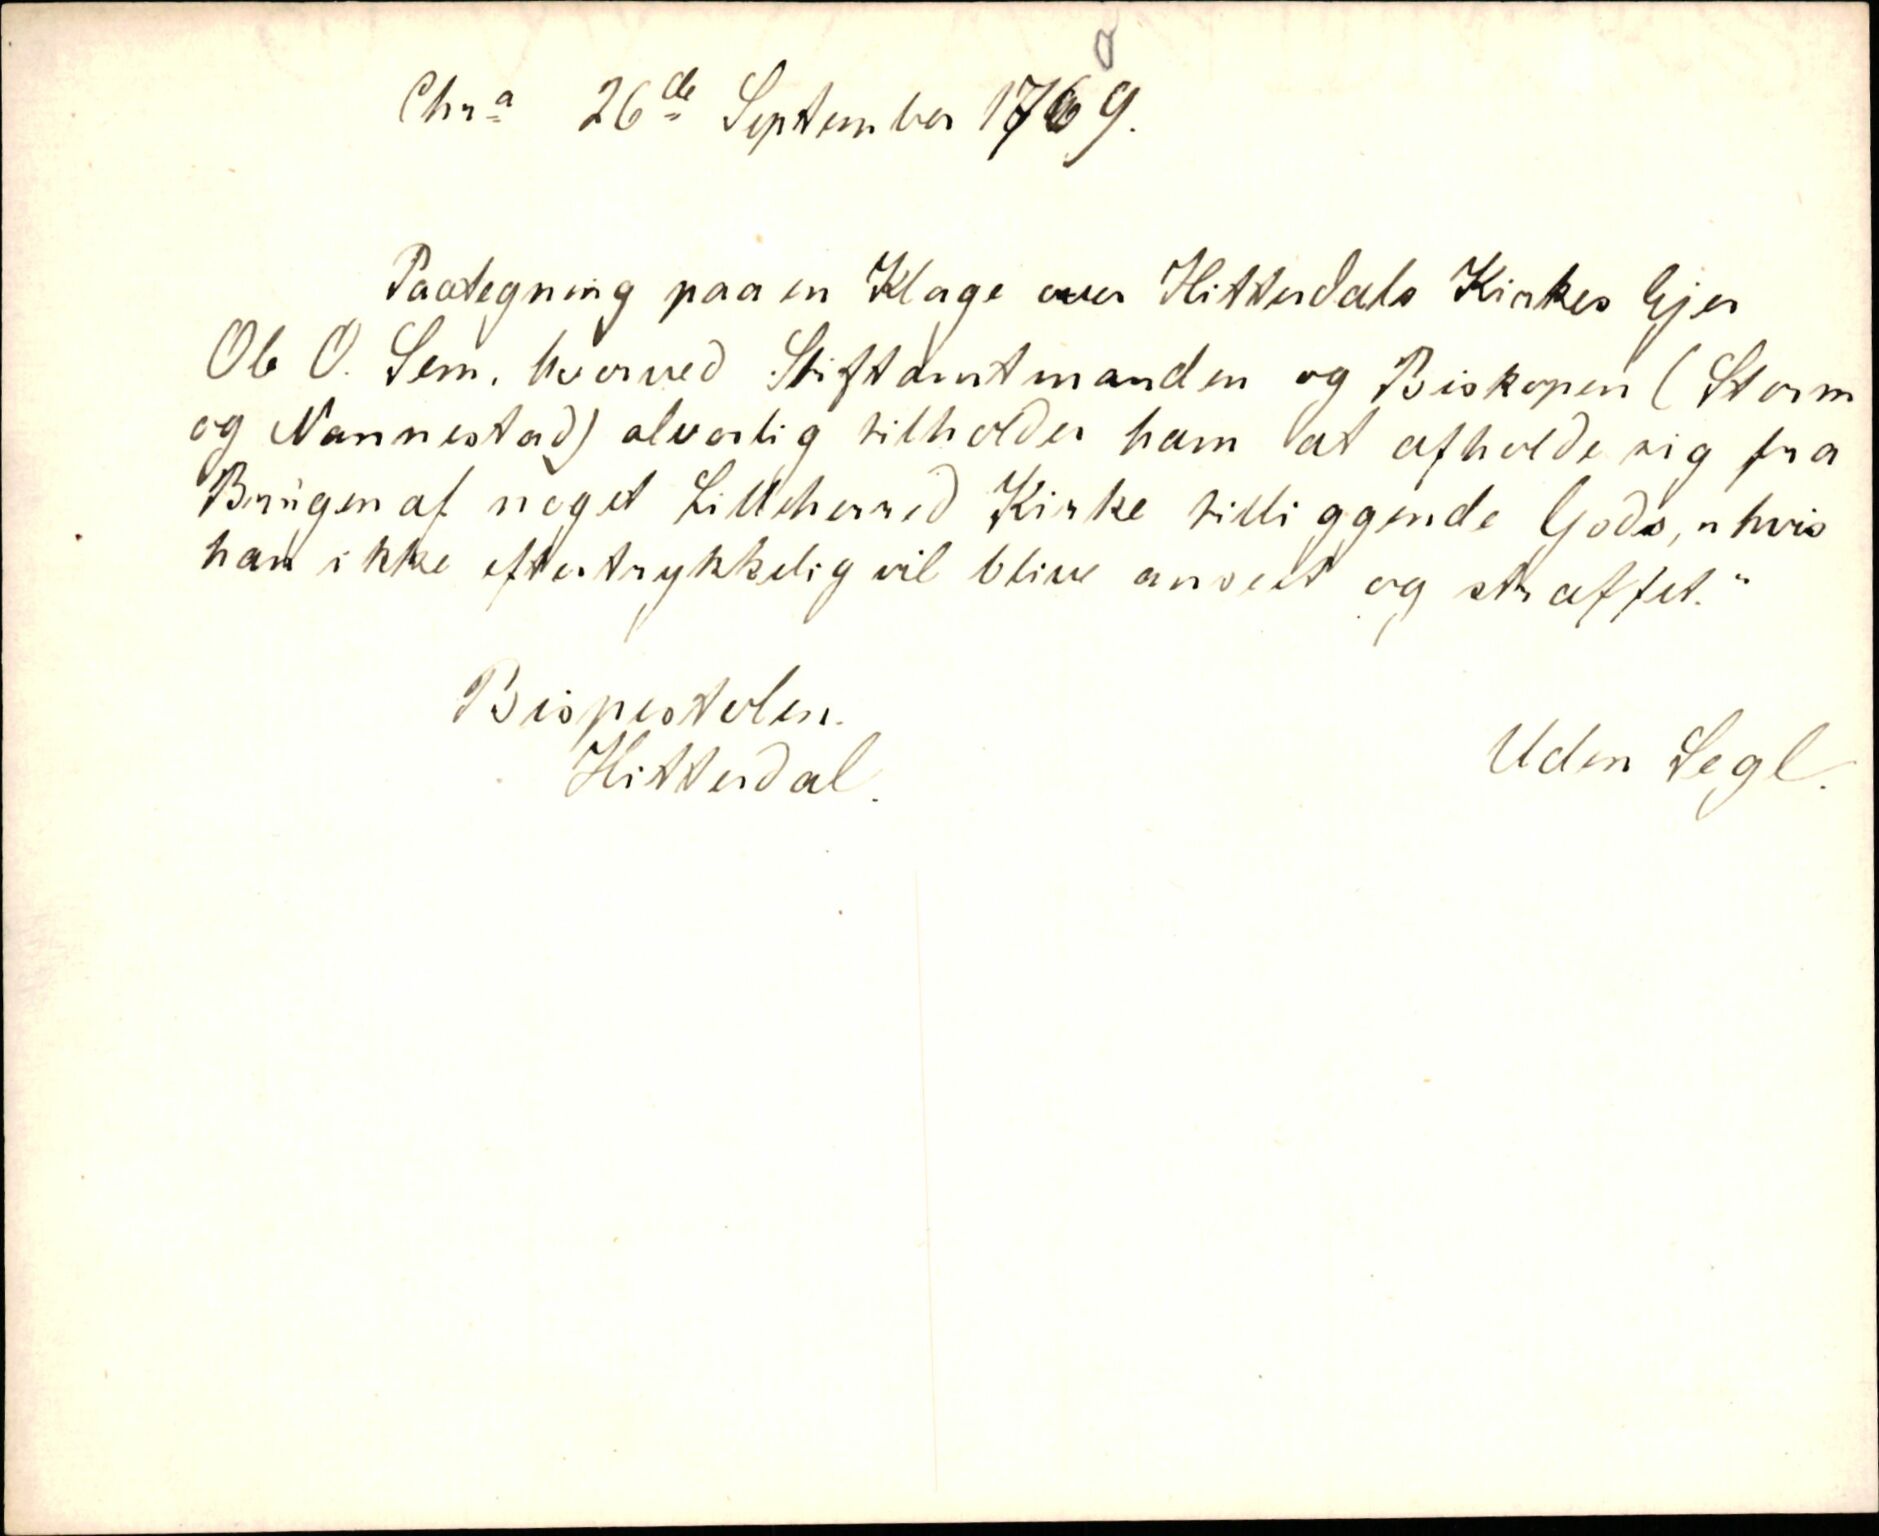 a
Chr<sup>a</sup> 26<sup>de</sup> September 1769.
Paategning paa en Klage over Hitterdals Kirkes Ejer
Ole O. Sem, hvorved Stiftamtmanden og Biskopen (Storm
og Nannestad) alvorlig tilholder ham at afholde sig fra
Brugen af noget Lilleherred Kirke tilliggende Gods, „hvis
han ikke eftertrykkelig vil blive anseet og straffet."
Bispestolen.
Hitterdal.
Uden Segl.